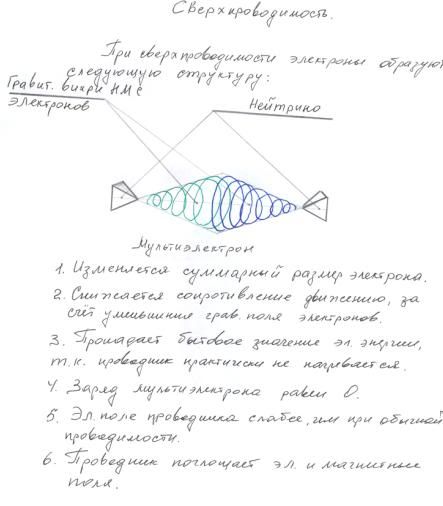 Сверхпроводимость.
При сверхпроводимости электроны образуют
следующую структуру:
Гравит. вихри НМС
электронов
Нейтрино
Мультиэлектрон
1. Изменяется суммарный размер электрона.
2. Снижается сопротивление движению, за
счёт уменьшения грав. поля электронов.
3. Пропадает бытовое значение эл. энергии,
т.к. проводник практически не нагревается.
4. Заряд мультиэлектрона равен 0.
5. Эл. поле проводника слабее, чем при обычной
проводимости.
6. Проводник поглощает эл. и магнитные
поля.